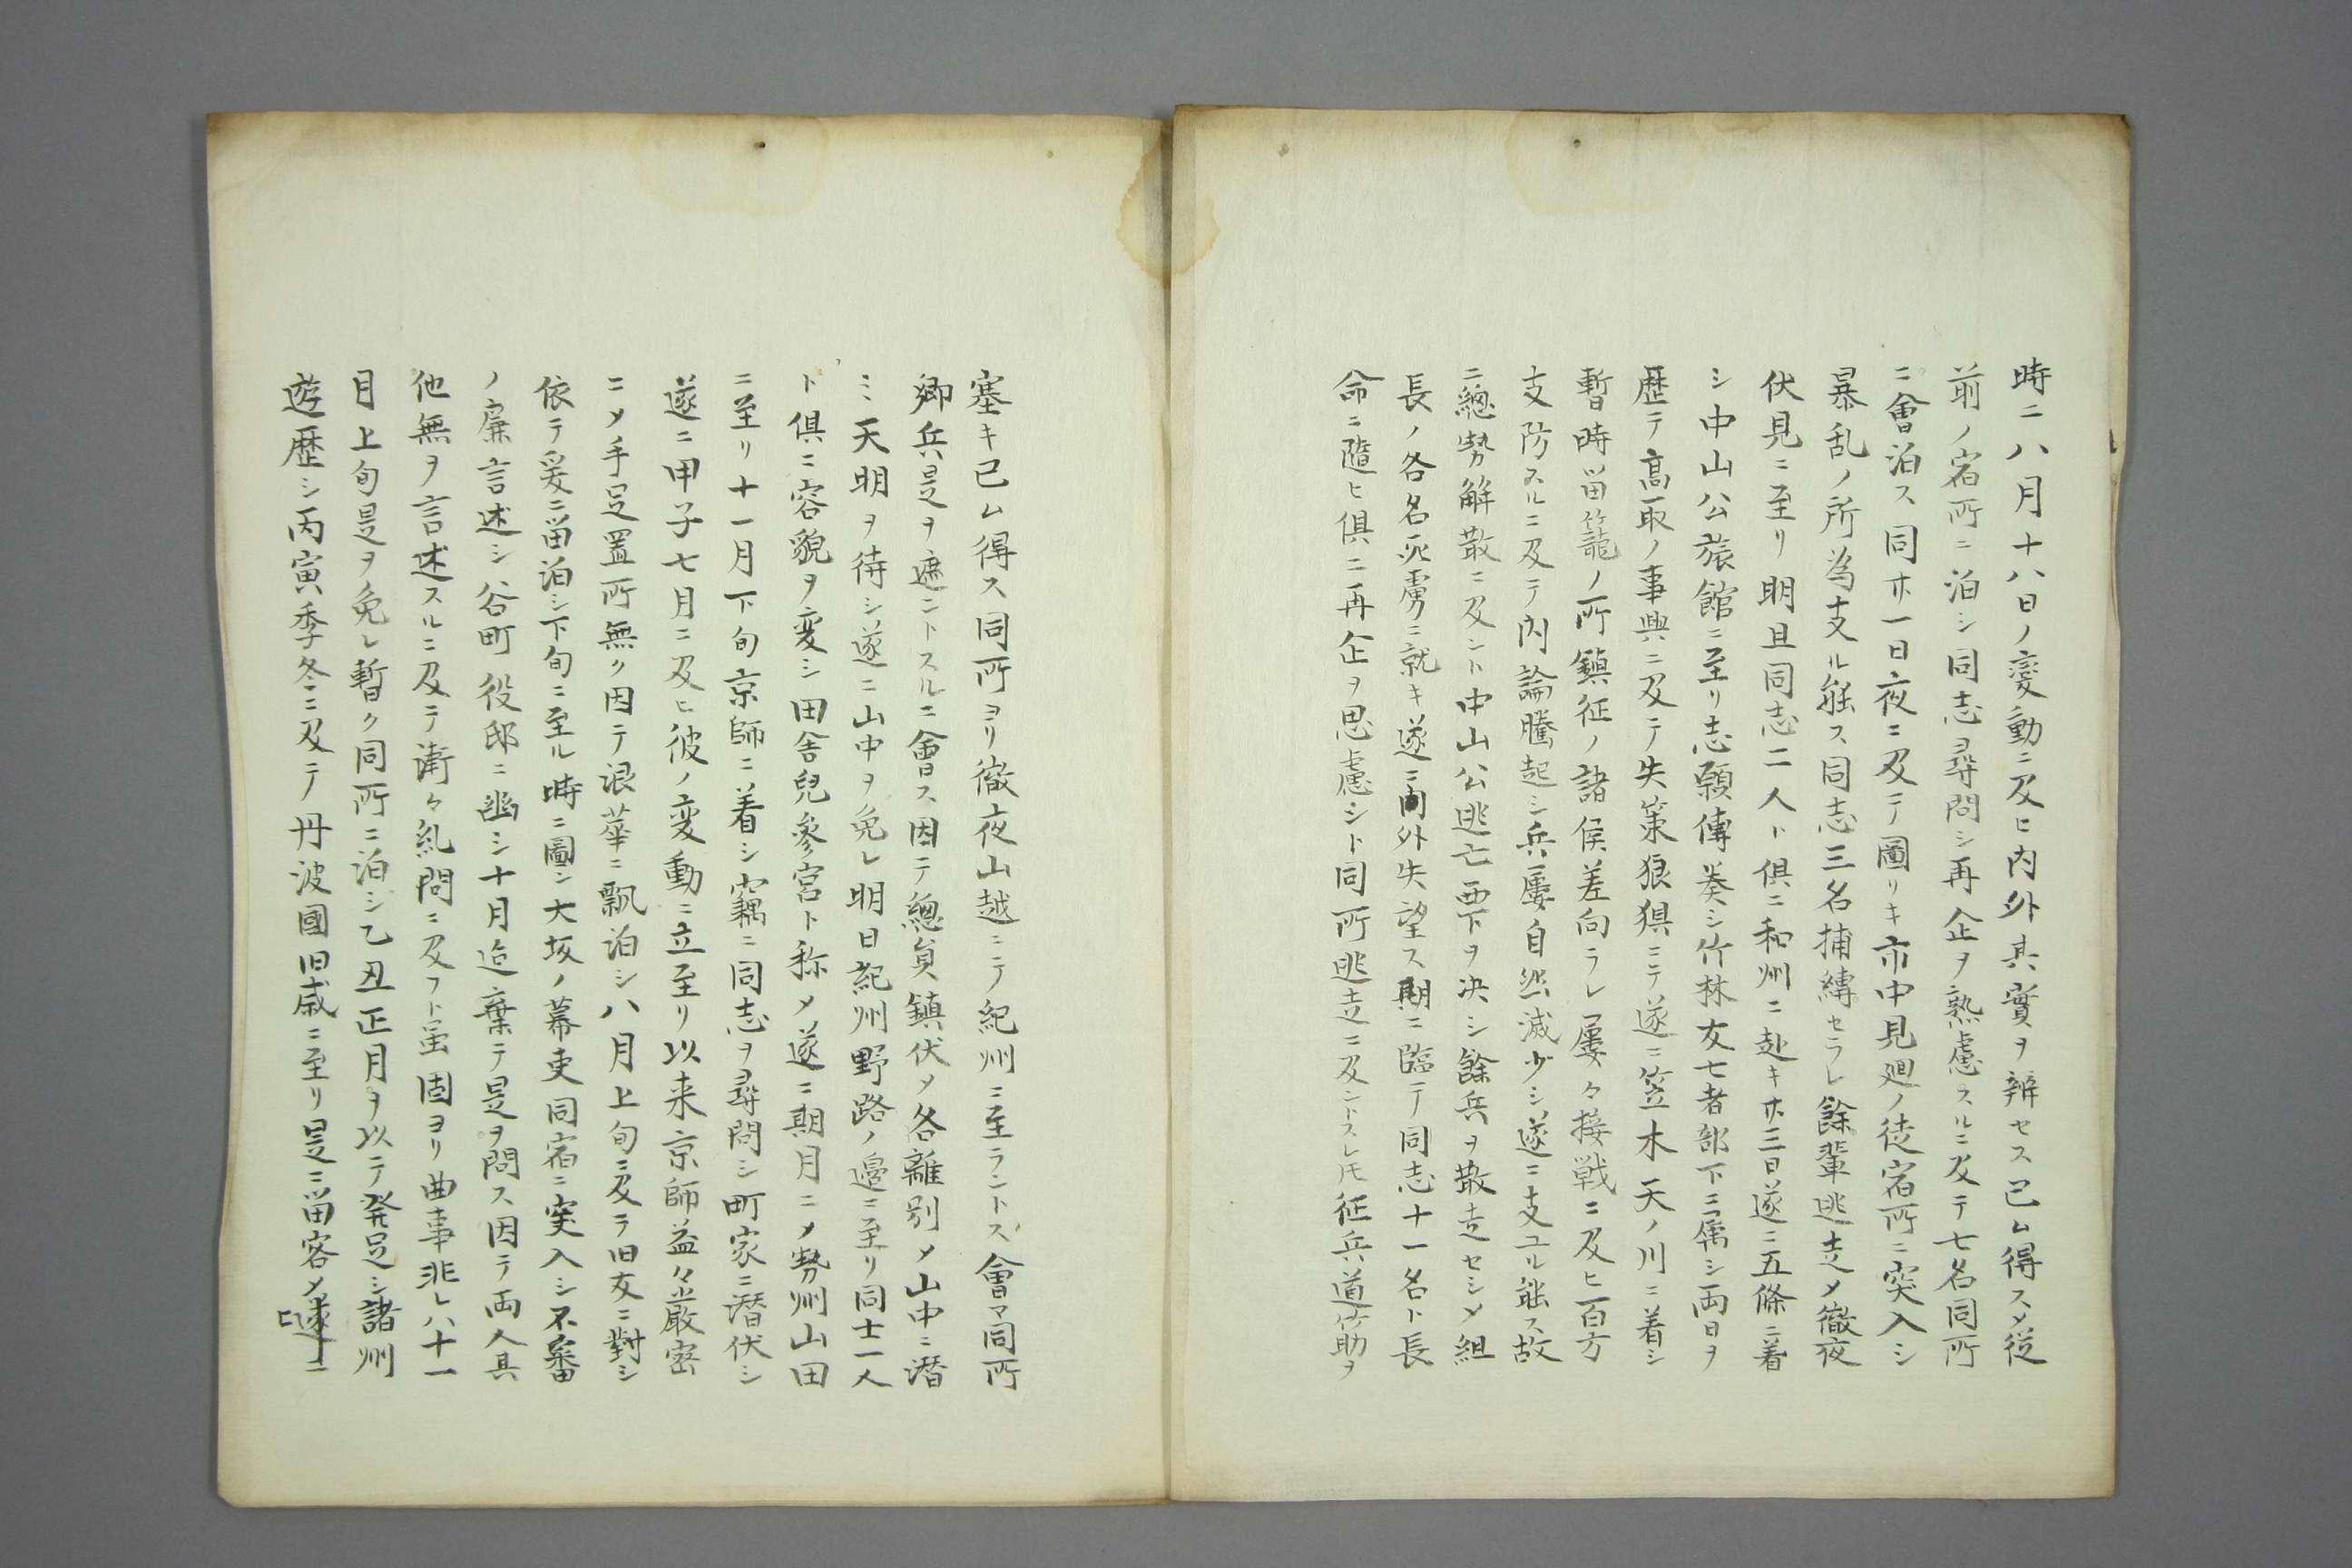 時ニ八月十八日ノ変動ニ及ヒ内外其實ヲ辨セス已ム得スメ従
前ノ宿所ニ泊シ同志尋問シ再企ヲ熟慮スルニ及テ七名同所
ニ會泊ス同廿一日夜ニ及テ圖リキ市中見廻ノ徒宿所ニ突入シ
暴乱ノ所為支ル能ス同志三名捕縛セラレ餘輩逃走メ徹夜
伏見ニ至リ明旦同志二人ト倶ニ和州ニ赴キ廿三日遂ニ五條ニ着
シ中山公旅館ニ至リ志願傳奏シ竹林友七者部下ニ属シ両日ヲ
歴テ高取ノ事興ニ及テ失策狼狽ニテ遂ニ笠木天ノ川ニ着シ
暫時畄籠ノ所鎮征ノ諸侯差向ラレ屢々接戦ニ及ヒ百方
支防スルニ及テ内論騰起シ兵屢自然滅少シ遂ニ支ユル能ス故
ニ總勢解散ニ及ント中山公逃亡西下ヲ决シ餘兵ヲ散走セシメ組
長ノ各名死虜ニ就キ遂ニ内外失望ス期ニ臨テ同志十一名ト長
命ニ隨ヒ倶ニ再企ヲ思慮シト同所逃走ニ及ントスレ𪜈征兵道筋ヲ
塞キ已ム得ス同所ヨリ徹夜山越ニテ紀州ニ至ラントス會マ同所
郷兵是ヲ遮ントスルニ會ス因テ總員鎮伏メ各離別メ山中ニ潜
ミ天明ヲ待シ遂ニ山中ヲ免レ明日紀州野路ノ邉ニ至リ同士一人
ト倶ニ容貌ヲ変シ田舎兒參宮ト称メ遂ニ期月ニメ勢州山田
ニ至リ十一月下旬京師ニ着シ竊ニ同志ヲ尋問シ町家ニ潜伏シ
遂ニ甲子七月ニ及ヒ彼ノ変動ニ立至リ以来京師益々厳密
ニメ手足置所無ク因テ浪華ニ飄泊シ八月上旬ニ及テ旧友ニ對シ
依テ爰ニ畄泊シ下旬ニ至ル時ニ圖ン大坂ノ幕吏同宿ニ突入シ不審
ノ廉言述シ谷町役邸ニ幽シ十月迠棄テ是ヲ問ス因テ両人具
他無ヲ言述スルニ及テ漸々糺問ニ及フト虽固ヨリ曲事非レハ十一
月上旬是ヲ免レ暫ク同所ニ泊シ乙丑正月ヲ以テ発足シ諸州
遊歴シ丙寅季冬ニ及テ丹波國旧戚ニ至リ是ニ畄客メ遂ニ